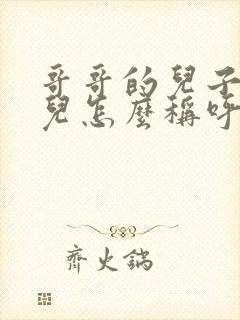 哥哥的兒子
兒怎麼稱呼
齊火鍋